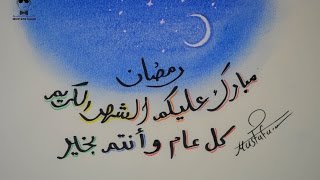 رمضان
مبارك عليكم الشهر الكريم
كل عام وأنتم بخير
Mustafa